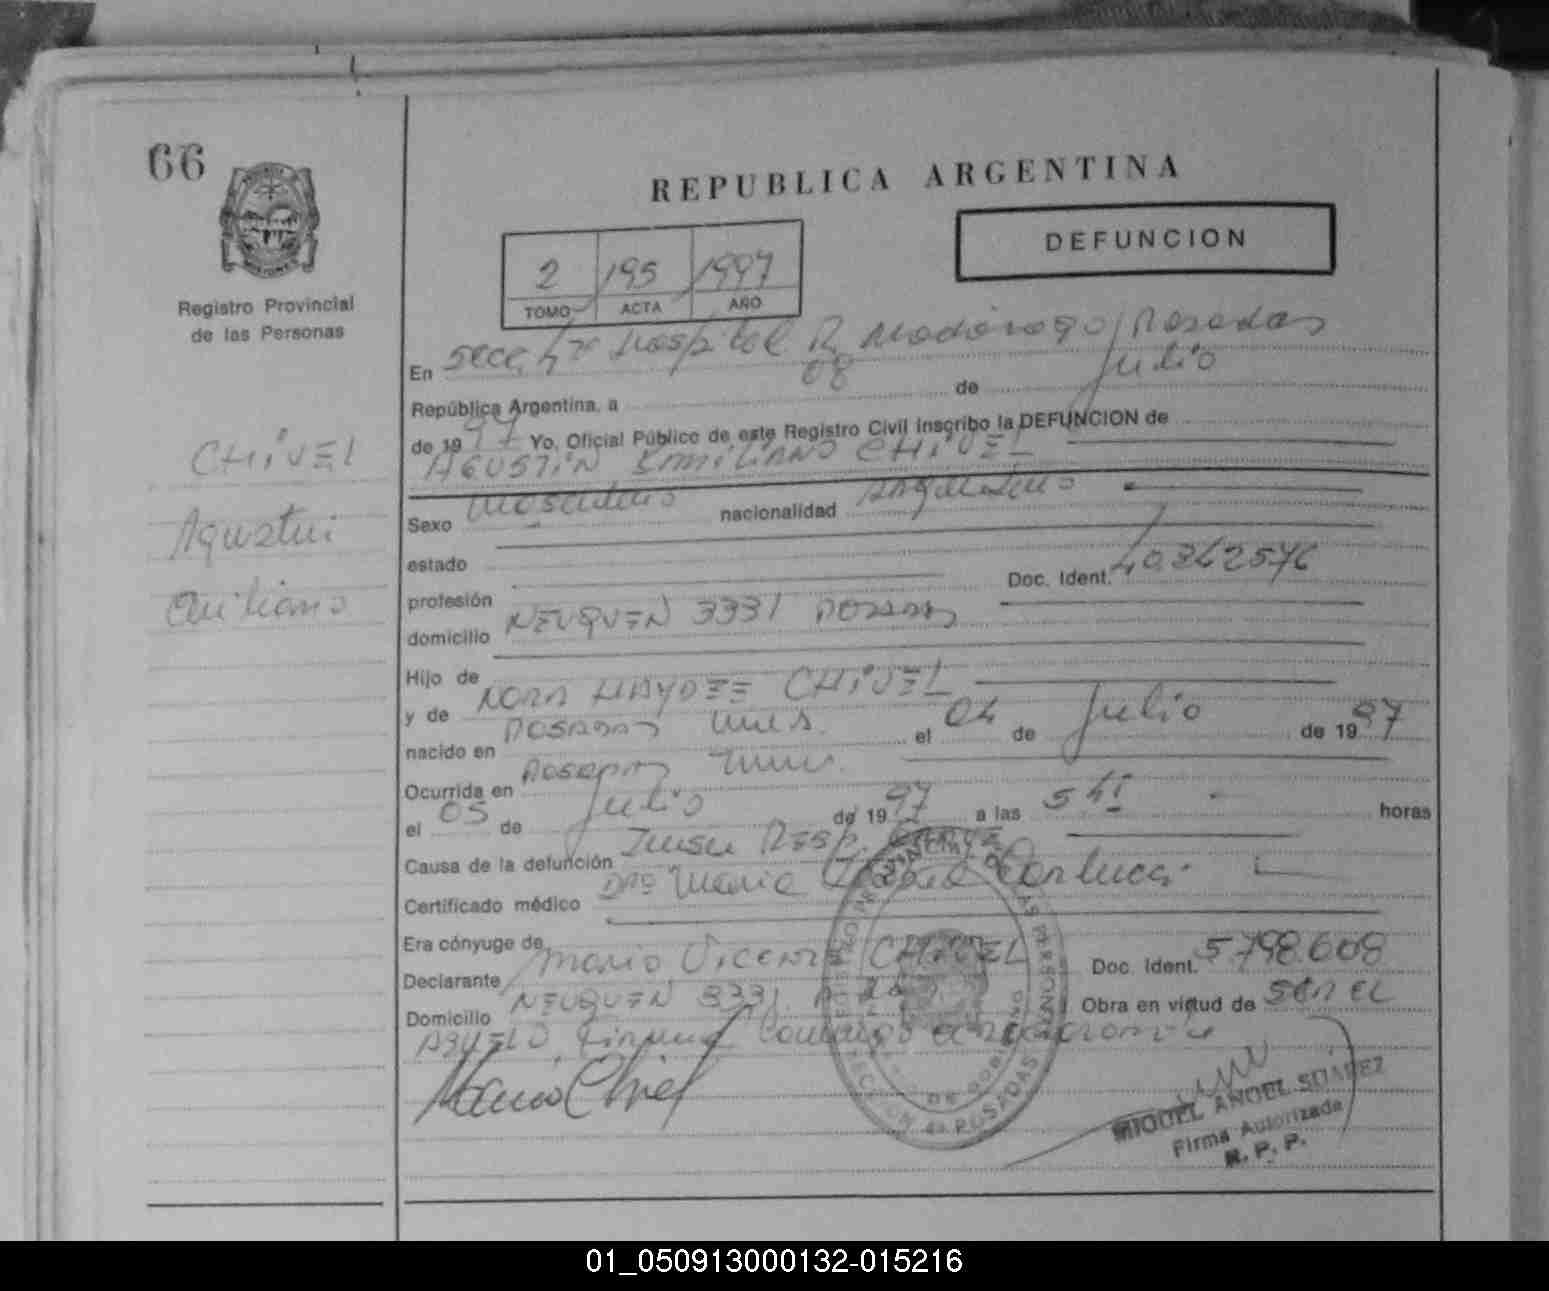 66
REPUBLICA ARGENTINA
DEFUNCION
2 195 1997
TOMO ACTA AÑO
Registro Provincial
de las Personas
CHIVEL
Agustin
Emiliano
En Secc. 4ta Hospital R. Madariaga, Posadas
República Argentina, a 08 de Julio
de 1997 Yo, Oficial Público de este Registro Civil inscribo la DEFUNCION de
AGUSTIN EMILIANO CHIVEL
Sexo Masculino nacionalidad Argentino
estado
profesión Doc. Ident. 40.342576
domicilio NEUQUEN 3331 POSADAS
Hijo de
y de NORA HAYDEE CHIVEL
nacido en POSADAS Mnes. el 04 de Julio de 1997
Ocurrida en POSADAS Mnes.
el 05 de Julio de 1997 a las 5 horas
Causa de la defunción Insu Resp. GRAVE
Certificado médico Dra Maria Carluca
Era cónyuge de
Declarante Mario Vicente CHIVEL Doc. Ident. 5798.608
Domicilio NEUQUEN 3331 Obra en virtud de ser el
ABUELO, firma
Mario Chivel
SECCION 4a POSADAS
MIGUEL ANGEL SUAREZ
Firma Autorizada
R. P. P.
01_050913000132-015216